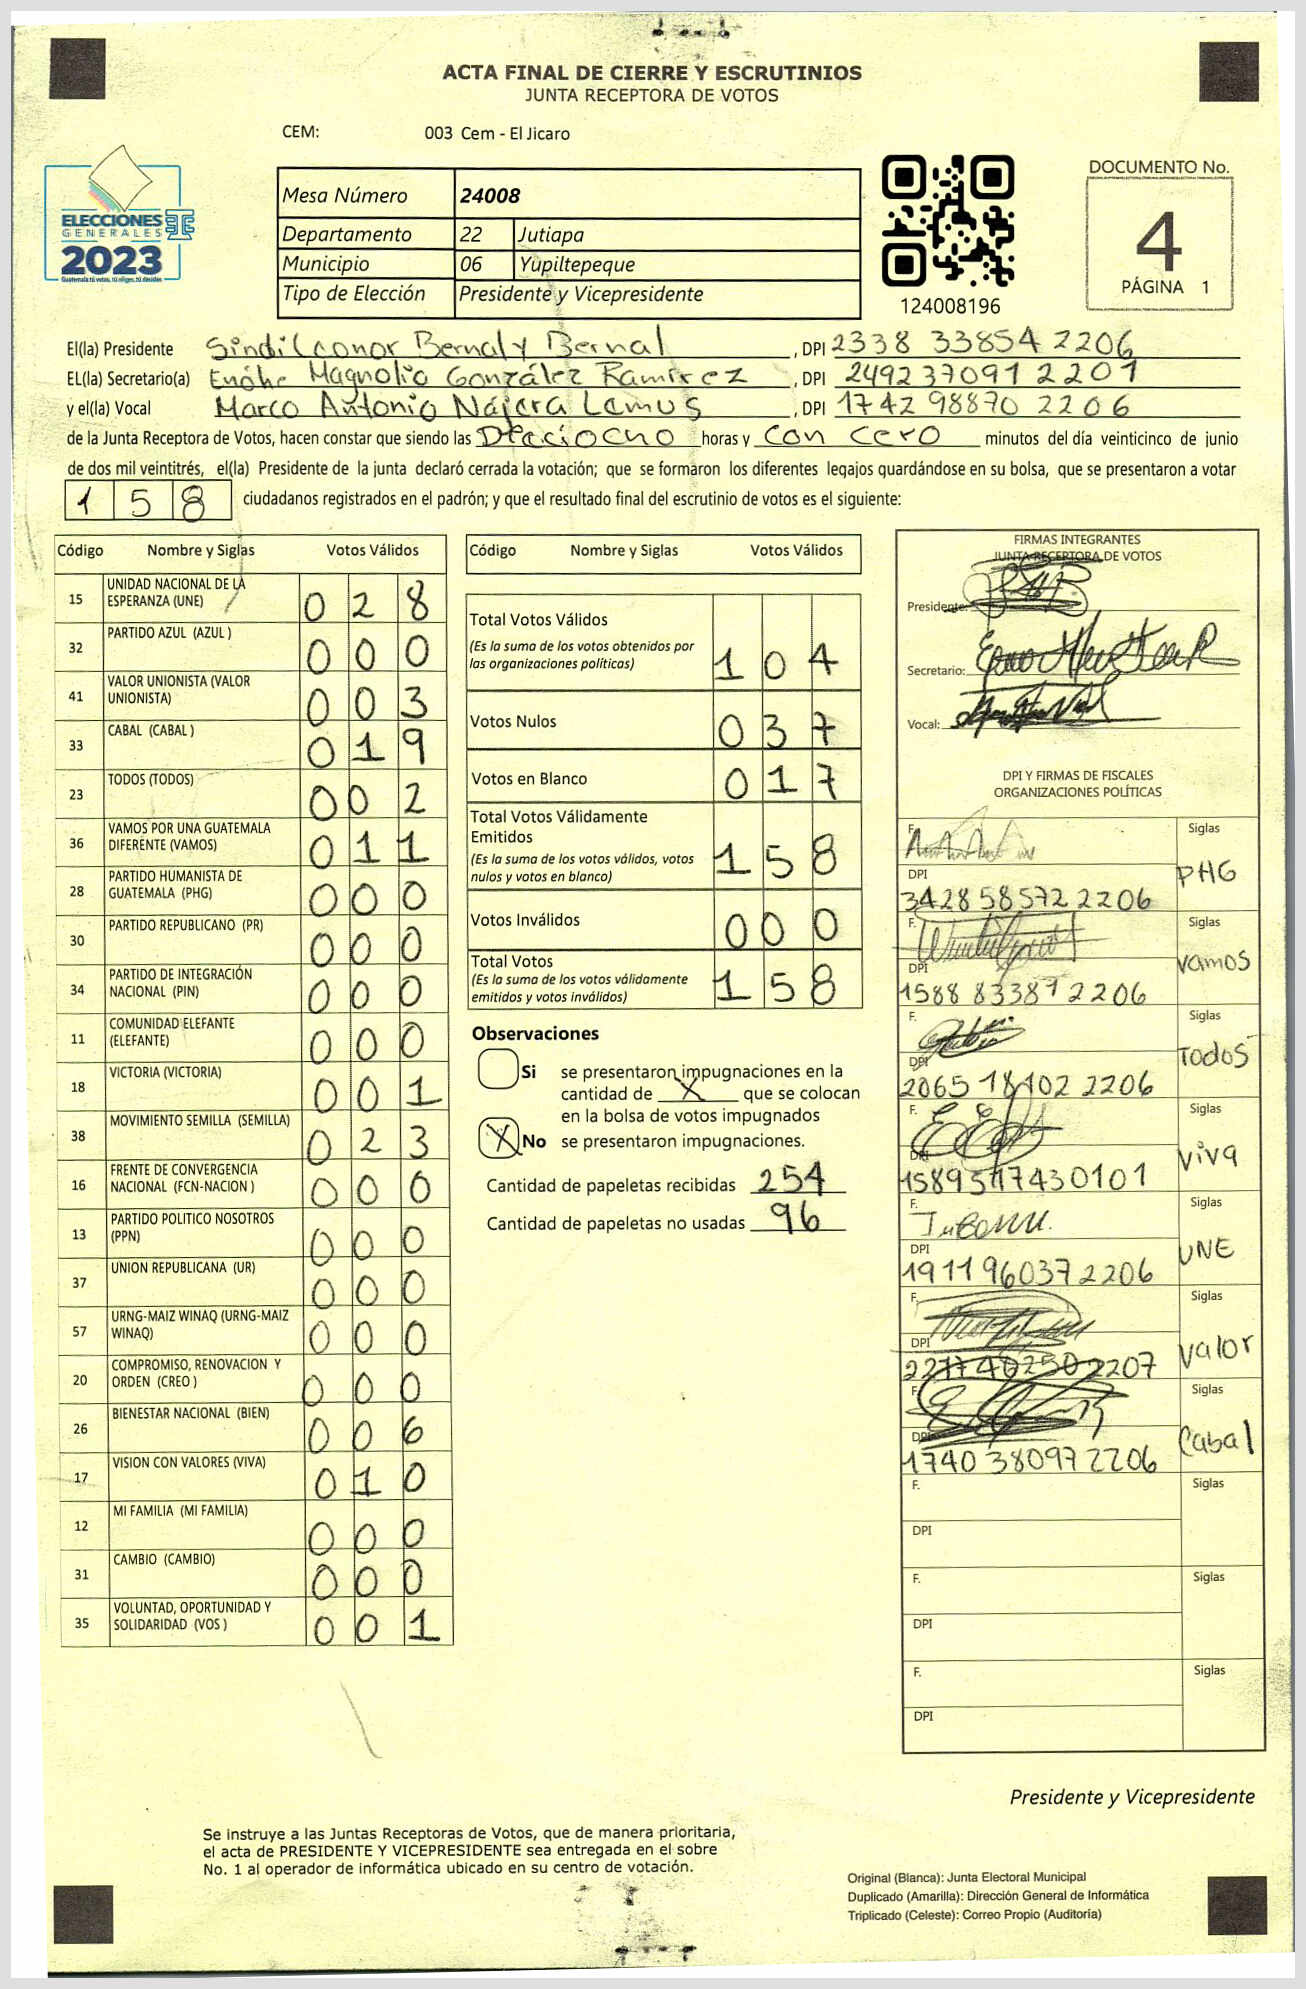 ACTA FINAL DE CIERRE Y ESCRUTINIOS
JUNTA RECEPTORA DE VOTOS
CEM: 003 Cem - El Jicaro
ELECCIONES
GENERALES
2023
Guatemala tú votas, tú eliges, tú decides
Mesa Número 24008
Departamento 22 Jutiapa
Municipio 06 Yupiltepeque
Tipo de Elección Presidente y Vicepresidente
124008196
DOCUMENTO No.
4
PÁGINA 1
El(la) Presidente Bernal y Bernal , DPI 2338 33854 2206
EL(la) Secretario(a) Magnolio González Ramírez , DPI 2492 37091 2201
y el(la) Vocal Marco Antonio Nájera Lemus , DPI 1742 98870 2206
de la Junta Receptora de Votos, hacen constar que siendo las Dieciocho horas y con cero minutos del día veinticinco de junio
de dos mil veintitrés, el(la) Presidente de la junta declaró cerrada la votación; que se formaron los diferentes legajos quardándose en su bolsa, que se presentaron a votar
158 ciudadanos registrados en el padrón; y que el resultado final del escrutinio de votos es el siguiente:
Código Nombre y Siglas Votos Válidos
15 UNIDAD NACIONAL DE LA ESPERANZA (UNE) 028
32 PARTIDO AZUL (AZUL ) 000
41 VALOR UNIONISTA (VALOR UNIONISTA) 003
33 CABAL (CABAL ) 019
23 TODOS (TODOS) 002
36 VAMOS POR UNA GUATEMALA DIFERENTE (VAMOS) 011
28 PARTIDO HUMANISTA DE GUATEMALA (PHG) 000
30 PARTIDO REPUBLICANO (PR) 000
34 PARTIDO DE INTEGRACIÓN NACIONAL (PIN) 000
11 COMUNIDAD ELEFANTE (ELEFANTE) 000
18 VICTORIA (VICTORIA) 001
38 MOVIMIENTO SEMILLA (SEMILLA) 023
16 FRENTE DE CONVERGENCIA NACIONAL (FCN-NACION ) 000
13 PARTIDO POLITICO NOSOTROS (PPN) 000
37 UNION REPUBLICANA (UR) 000
57 URNG-MAIZ WINAQ (URNG-MAIZ WINAQ) 000
20 COMPROMISO, RENOVACION Y ORDEN (CREO ) 000
26 BIENESTAR NACIONAL (BIEN) 006
17 VISION CON VALORES (VIVA) 010
12 MI FAMILIA (MI FAMILIA) 000
31 CAMBIO (CAMBIO) 000
35 VOLUNTAD, OPORTUNIDAD Y SOLIDARIDAD (VOS ) 001
Código Nombre y Siglas Votos Válidos
Total Votos Válidos 104
(Es la suma de los votos obtenidos por
las organizaciones políticas)
Votos Nulos 037
Votos en Blanco 017
Total Votos Válidamente
Emitidos 158
(Es la suma de los votos válidos, votos
nulos y votos en blanco)
Votos Inválidos 000
Total Votos 158
(Es la suma de los votos válidamente
emitidos y votos inválidos)
Observaciones
Si se presentaron impugnaciones en la
cantidad de X que se colocan
en la bolsa de votos impugnados
X No se presentaron impugnaciones.
Cantidad de papeletas recibidas 254
Cantidad de papeletas no usadas 96
FIRMAS INTEGRANTES
JUNTA RECEPTORA DE VOTOS
Presidente:
Secretario:
Vocal:
DPI Y FIRMAS DE FISCALES
ORGANIZACIONES POLÍTICAS
F. Siglas PHG
DPI 3428 58572 2206
F. Siglas Vamos
DPI 1588 83387 2206
F. Siglas Todos
DPI 2065 18102 2206
F. Siglas Viva
DPI 1589517430101
F. Siglas UNE
DPI 1911 96037 2206
F. Siglas Valor
DPI 2217 40250 2207
F. Siglas Cabal
DPI 1740 38097 2206
F. Siglas
DPI
F. Siglas
DPI
F. Siglas
DPI
Presidente y Vicepresidente
Se instruye a las Juntas Receptoras de Votos, que de manera prioritaria,
el acta de PRESIDENTE Y VICEPRESIDENTE sea entregada en el sobre
No. 1 al operador de informática ubicado en su centro de votación.
Original (Blanca): Junta Electoral Municipal
Duplicado (Amarilla): Dirección General de Informática
Triplicado (Celeste): Correo Propio (Auditoría)